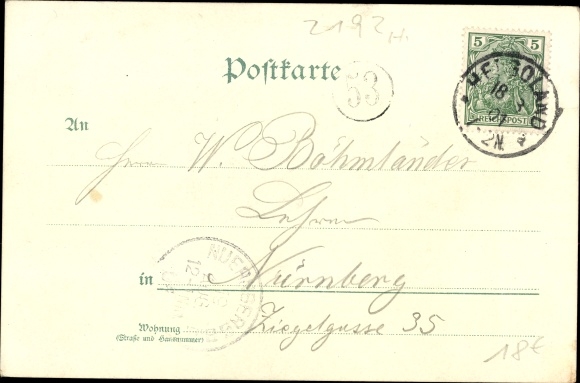 2192 H.
5 5
REICHSPOST
HELGOLAND
18 3
2N
Postkarte
53
An
Herrn W. Böhmländer
Lehrer
in Nürnberg
NUERNBERG
12
Wohnung Ziegelgasse 35
(Straße und Hausnummer)
18€